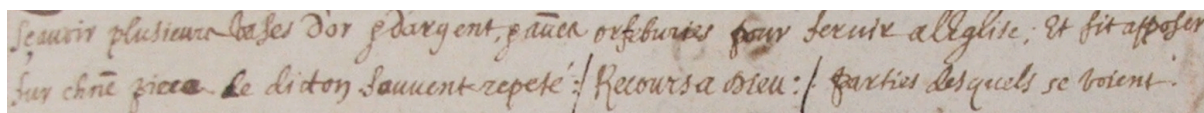 Sçauoir plusieurs vases dor & dargent, & aũes orfebvries pour seruir a leglise; Et fit apposer
sur chũe piece le dicton souuent repeté :/ Recours a Dieu :/ parties desquels se voient